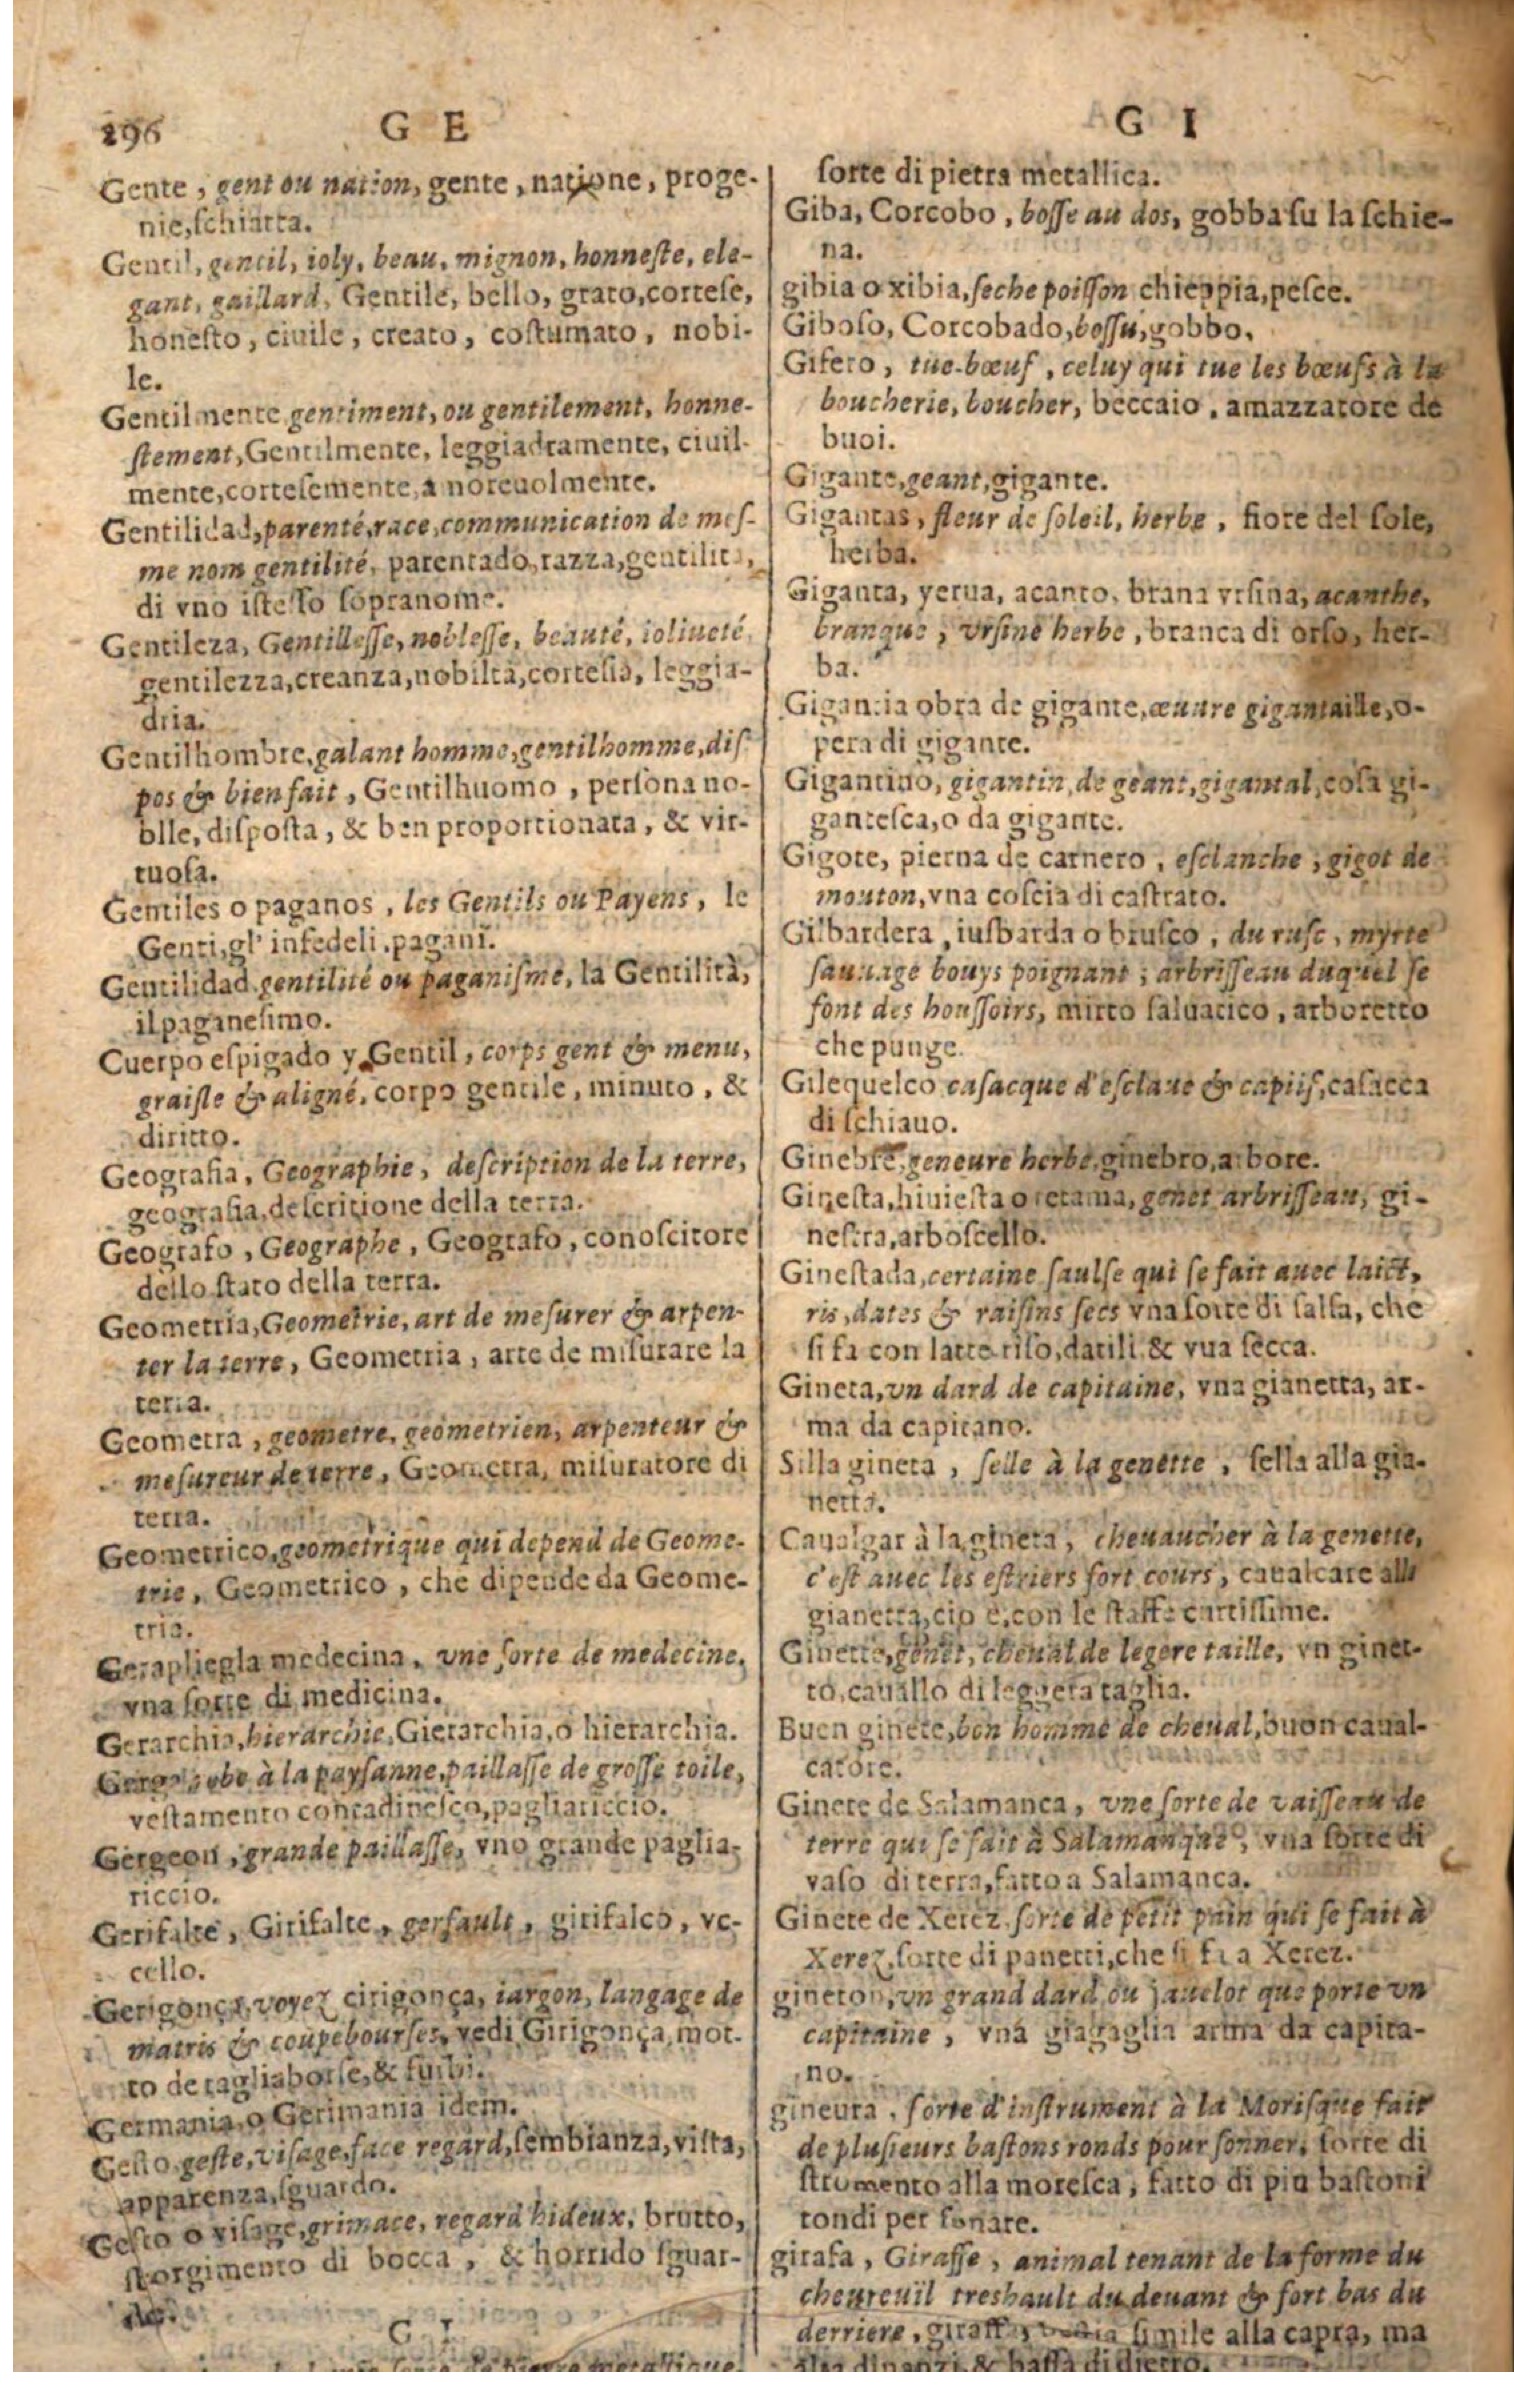 296
G E
Gente, gent ou nation, gente, natione, proge-
nie,ſchiatta.
Gentil, gentil, ioly, beau, mignon, honneſte, ele-
gant, gaillard, Gentile, bello, grato,corteſe,
honeſto, ciuile, creato, coſtumato, nobi-
le.
Gentilmente,gentiment, ou gentilement, honne-
ſtement,Gentilmente, leggiadramente, ciuil-
mente,corteſemente,a noreuolmente.
Gentilidad,parenté,race,communication de meſ-
me nom gentilité, parentado,razza,gentilita,
di vno iſteſſo ſopranome.
Gentileza, Gentilleſſe, nobleſſe, beauté, ioliueté,
gentilezza,creanza,nobiltà,corteſia, leggia-
dria.
Gentilhombre,galant homme,gentilhomme,diſ
pos & bien fait, Gentilhuomo, perſona no-
blle, diſpoſta, & ben proportionata, & vir-
tuoſa.
Gentiles o paganos, les Gentils ou Payens, le
Genti,gl' infedeli,pagani.
Gentilidad,gentilité ou paganiſme, la Gentilità,
il paganeſimo.
Cuerpo eſpigado y Gentil, corps gent & menu,
graiſle & aligné, corpo gentile, minuto, &
diritto.
Geografia, Geographie, deſcription de la terre,
geografia,deſcritione della terra.
Geografo, Geographe, Geografo, conoſcitore
dello ſtato della terra.
Geometria,Geometrie, art de meſurer & arpen-
ter la terre, Geometria, arte de miſurare la
terra.
Geometra, geometre, geometrien, arpenteur &
meſureur de terre, Geometra, miſuratore di
terra.
Geometrico,geometrique qui depend de Geome-
trie, Geometrico, che dipende da Geome-
tria.
Gerapliegla medecina, vne ſorte de medecine,
vna ſorte di medicina.
Gerarchia,hierarchie,Gierarchia,o hierarchia.
à la payſanne,paillaſſe de groſſe toile,
veſtamento contadineſco,pagliariccio.
Gergeon, grande paillaſſe, vno grande paglia-
riccio.
Gerifalte, Girifalte, gerfault, girifalco, vc-
cello.
Gerigonça,voyez cirigonça, iargon, langage de
matris & coupebourſes, vedi Girigonça, mot-
to de tagliaborſe,& furbi.
Germania,o Gerimania idem.
Geſto geſte,viſage,face regard,ſembianza,viſta,
apparenza,ſguardo.
Geſto o viſage,grimace, regard hideux, brutto,
ſtorgimento di bocca, & horrido ſguar-
do.
G I
G I
ſorte di pietra metallica.
Giba, Corcobo, boſſe au dos, gobba ſu la ſchie-
na.
gibia o xibia,ſeche poiſſon chieppia,peſce.
Giboſo, Corcobado,boſſu,gobbo.
Gifero, tue-bœuf, celuy qui tue les bœufs à la
boucherie, boucher, beccaio, amazzatore de
buoi.
Gigante,geant,gigante.
Gigantas, fleur de ſoleil, herbe, fiore del ſole,
herba.
Giganta, yerua, acanto, brana vrſina, acanthe,
branque, vrſine herbe, branca di orſo, her-
ba.
Gigantia obra de gigante,œuure gigantaille,o-
pera di gigante.
Gigantino, gigantin,de geant,gigantal,coſa gi-
ganteſca,o da gigante.
Gigote, pierna de carnero, eſclanche, gigot de
mouton,vna coſcia di caſtrato.
Gilbardera, iuſbarda o bruſco, du ruſc, myrte
ſauuage bouys poignant, arbriſſeau duquel ſe
font des houſſoirs, mirto ſaluatico, arboretto
che punge.
Gilequelco caſacque d'eſclaue & captiſ,caſacca
di ſchiauo.
Ginebre,geneure herbe,ginebro,arbore.
Gineſta,hiuieſta o retama,genet arbriſſeau, gi-
neſtra,arboſcello.
Gineſtada,certaine ſaulſe qui ſe fait auec laict,
ris,dates & raiſins ſecs vna ſorte di ſalſa, che
ſi fa con latte riſo,datili & vua ſecca.
Gineta,vn dard de capitaine, vna gianetta, ar-
ma da capitano.
Silla gineta, ſelle à la genette, ſella alla gia-
netta.
Caualgar à la gineta, cheuaucher à la genette,
c'eſt auec les eſtriers fort cours, caualcare alla
gianetta,cio è,con le ſtaffe curtiſſime.
Ginette,genet, cheual de legere taille, vn ginet-
to,cauallo di leggera taglia.
Buen ginete,bon homme de cheual,buon caual-
catore.
Ginete de Salamanca, vne ſorte de vaiſſeau de
terre qui ſe fait à Salamanque, vna ſorte di
vaſo di terra,fatto a Salamanca.
Ginete de Xerez,ſorte de petit pain qui ſe fait à
Xerez,ſorte di panetti,che ſi fa a Xerez.
gineton,vn grand dard ou jauelot que porte vn
capitaine, vna giagaglia arma da capita-
no.
gineura, ſorte d'inſtrument à la Moriſque fait
de pluſieurs baſtons ronds pour ſonner, ſorte di
ſtrumento alla moreſca, fatto di piu baſtoni
tondi per ſonare.
girafa, Giraffe, animal tenant de la forme du
cheureuïl treshault du deuant & fort bas du
derriere, giraffa, ſimile alla capra, ma
dinanzi,& baſſa di dietro.